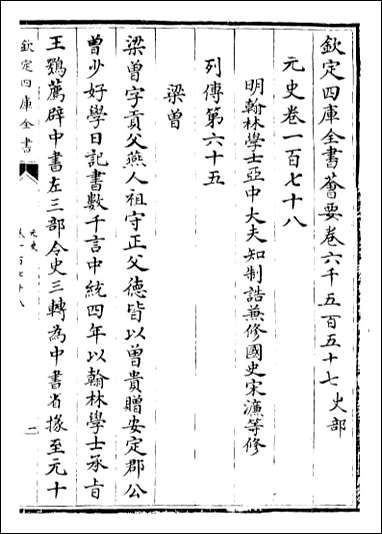 欽定四庫全書薈要卷六千五百五十七 史部
元史卷一百七十八
明翰林學士亞中大夫知制誥兼修國史宋濂等修
列傳第六十五
梁曾
梁曾字貢父燕人祖守正父德皆以曾貴贈安定郡公
曾少好學日記書數千言中統四年以翰林學士承㫖
王鶚薦辟中書左三部令史三轉為中書省掾至元十
欽定四庫全書
元史
卷一百七十八